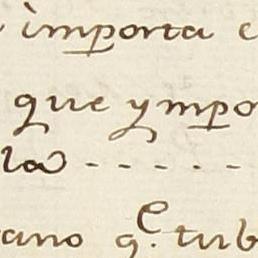 importa e
que ympo
la - - - - -
ano q.e tub